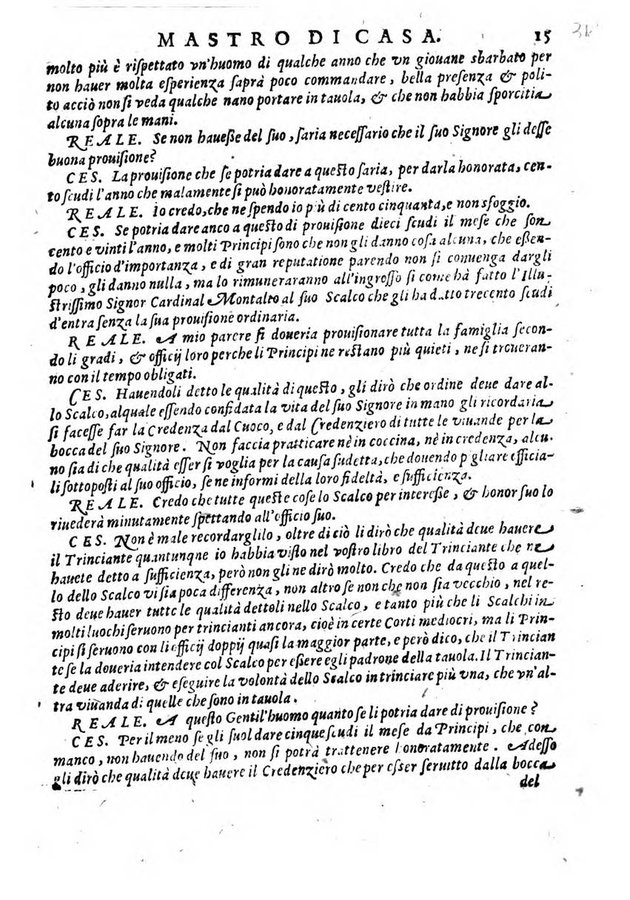 MASTRO DI CASA. 15
molto più è rispettato vn'huomo di qualche anno che vn giouane sbarbato per
non hauer molta esperienza saprà poco commandare, bella presenza & poli-
to acciò non si veda qualche nano portare in tauola, & che non habbia sporcitia
alcuna sopra le mani.
REALE. Se non hauesse del suo, saria necessario che il suo Signore gli desse
buona prouisione?
CES. La prouisione che se potria dare a questo saria, per darla honorata, cen-
to scudi l'anno che malamente si può honoratamente vestire.
REALE. Io credo, che ne spendo io più di cento cinquanta, e non sfoggio.
CES. Se potria dare anco a questo di prouisione dieci scudi il mese che son
cento e vinti l'anno, e molti Principi sono che non gli danno cosa alcuna, che essen-
do l'officio d'importanza, e di gran reputatione parendo non si conuenga dargli
poco, gli danno nulla, ma lo rimuneraranno all'ingrosso sì come hà fatto l'Illu-
strissimo Signor Cardinal Montalto al suo Scalco che gli ha datto trecento scudi
d'entra senza la sua prouisione ordinaria.
REALE. A mio parere si doueria prouisionare tutta la famiglia secon-
do li gradi, & officij loro perche li Principi ne restano più quieti, ne si troueran-
no con il tempo obligati.
CES. Hauendoli detto le qualità di questo, gli dirò che ordine deue dare al-
lo Scalco, alquale essendo confidata la vita del suo Signore in mano gli ricordaria
si facesse far la Credenza dal Cuoco, e dal Credenziero di tutte le viuande per la
bocca del suo Signore. Non faccia pratticare nè in coccina, nè in credenza, alcu-
no sia di che qualità esser si voglia per la causa sudetta, che douendo pigliare officia-
li sottoposti al suo officio, se ne informi della loro fideltà, e sufficienza.
REALE. Credo che tutte queste cose lo Scalco per interesse, & honor suo lo
riuederà minutamente spettando all'officio suo.
CES. Non è male recordarglilo, oltre di ciò li dirò che qualità deue hauere
il Trinciante quantunque io habbia visto nel vostro libro del Trinciante che ne
hauete detto a sufficienza, però non gli ne dirò molto. Credo che da questo a quel-
lo dello Scalco vi sia poca differenza, non altro se non che non sia vecchio, nel re-
sto deue hauer tutte le qualità dettoli nello Scalco, e tanto più che li Scalchi in
molti luochi seruono per trincianti ancora, cioè in certe Corti mediocri, ma li Prin-
cipi si seruono con li officij doppij quasi la maggior parte, e però dico, che il Trincian
te se la doueria intendere col Scalco per essere egli padrone della tauola. Il Trincian-
te deue aderire, & eseguire la volontà dello Scalco in trinciare più vna, che vn'al-
tra viuanda di quelle che sono in tauola.
REALE. A questo Gentil'huomo quanto se li potria dare di prouisione?
CES. Per il meno se gli suol dare cinque scudi il mese da Principi, che con
manco, non hauendo del suo, non si potrà trattenere honoratamente. Adesso
gli dirò che qualità deue hauere il Credenziero che per esser seruitto dalla bocca
del